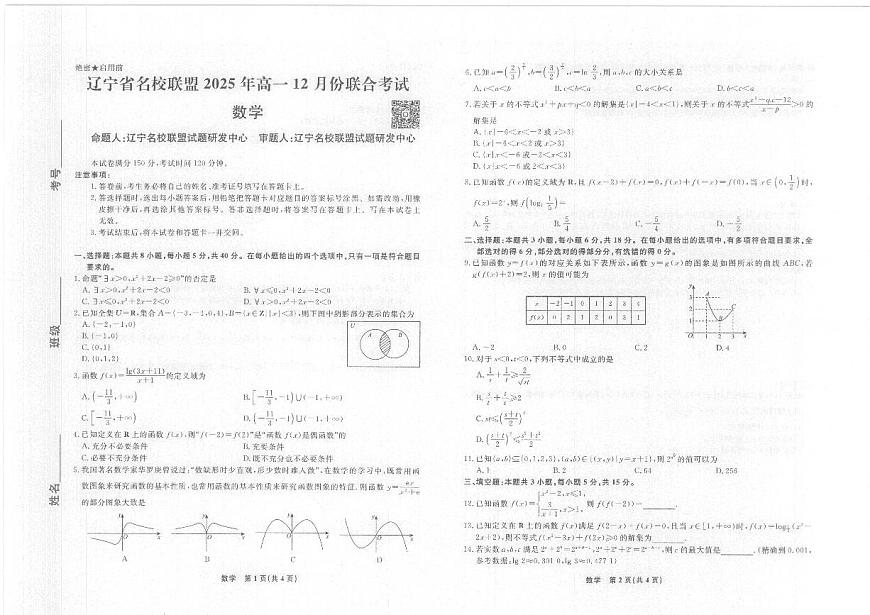 绝密★启用前
辽宁省名校联盟 2025 年高一 12 月份联合考试
数学
命题人:辽宁名校联盟试题研发中心 审题人:辽宁名校联盟试题研发中心
本试卷满分 150 分,考试时间 120 分钟。
注意事项:
1. 答卷前,考生务必将自己的姓名、准考证号填写在答题卡上。
2. 答选择题时,选出每小题答案后,用铅笔把答题卡对应题目的答案标号涂黑。如需改动,用橡
皮擦干净后,再选涂其他答案标号。答非选择题时,将答案写在答题卡上。写在本试卷上
无效。
3. 考试结束后,将本试卷和答题卡一并交回。
考号
班级
姓名
一、选择题:本题共 8 小题,每小题 5 分,共 40 分。在每小题给出的四个选项中,只有一项是符合题目
要求的。
1. 命题“∃x>0,x²+2x-2≥0”的否定是
A. ∃x>0,x²+2x-2<0 B. ∀x≤0,x²+2x-2<0
C. ∃x≤0,x²+2x-2<0 D. ∀x>0,x²+2x-2<0
2. 已知全集 U=R,集合 A={-3,-1,0,4},B={x∈Z||x|<3},则下图中阴影部分表示的集合为
A. {-2,-1,0}
B. {-1,0}
C. {0,1}
D. {0,1,2}
U A B
3. 函数 f(x)=lg(3x+11)/(x+1) 的定义域为
A. (-11/3,+∞) B. [-11/3,-1)∪(-1,+∞)
C. [-11/3,+∞) D. (-11/3,-1)∪(-1,+∞)
4. 已知定义在 R 上的函数 f(x),则“f(-2)=f(2)”是“函数 f(x)是偶函数”的
A. 充分不必要条件 B. 充要条件
C. 必要不充分条件 D. 既不充分也不必要条件
5. 我国著名数学家华罗庚曾说过:“数缺形时少直观,形少数时难入微”,在数学的学习中,既常用函
数图象来研究函数的基本性质,也常用函数的基本性质来研究函数图象的特征.则函数 y=
的部分图象大致是
A B C D
数学 第 1 页(共 4 页)
6. 已知 a=(2/3),b=(3/2),c=ln 2/3,则 a,b,c 的大小关系是
A. c<a<b B. c<b<a C. a<b<c D. b<c<a
7. 若关于 x 的不等式 x²+px+q<0 的解集是{x|-4<x<1},则关于 x 的不等式(x²-qx-12)/(x-p)>0 的
解集是
A. {x|-6<x<-2 或 x>3}
B. {x|-6<x<2 或 x>3}
C. {x|x<-6 或-2<x<3}
D. {x|x<-6 或 2<x<3}
8. 已知函数 f(x)的定义域为 R,且 f(x-2)+f(x)=0,f(x)+f(-x)=f(0),当 x∈(0,1/2)时,
f(x)=2ˣ,则 f(log 1/5)=
A. 5/2 B. 5/4 C. -5/4 D. -5/2
二、选择题:本题共 3 小题,每小题 6 分,共 18 分。在每小题给出的选项中,有多项符合题目要求,全
部选对的得 6 分,部分选对的得部分分,有选错的得 0 分。
9. 已知函数 y=f(x)的对应关系如下表所示,函数 y=g(x)的图象是如图所示的曲线 ABC,若
g(f(x)+2)=2,则 x 的值可能为
x -2 -1 0 1 2 3 4
f(x) 0 2 1 2 0 3 1
y 3 2 1 O 1 2 3 x A B C
A. -2 B. 0 C. 2 D. 4
10. 对于 s<0,t<0,下列不等式中成立的是
A. 1/s+1/t≥2/√st
B. s/t+t/s≥2
C. st≤((s+t)/2)²
D. ((s+t)/2)²≤(s²+t²)/2
11. 已知{a,b}⊆{0,1,2,3},(a,b)∈{(x,y)|y=x+1},则 2 的值可以为
A. 1 B. 2 C. 64 D. 256
三、填空题:本题共 3 小题,每小题 5 分,共 15 分。
12. 已知函数 f(x)={x²-2,x≤1, 3/(x+1),x>1, 则 f(f(-2))=______.
13. 已知定义在 R 上的函数 f(x)满足 f(2-x)-f(x)=0,且当 x∈[1,+∞)时,f(x)=log(x²-
2x+2),则不等式 f(x²-3x)+f(2x)≥0 的解集为______.
14. 若实数 a,b,c 满足 则 c 的最大值是______.(精确到 0.001,
参考数据:lg 2≈0.301 0,lg 3≈0.477 1)
数学 第 2 页(共 4 页)